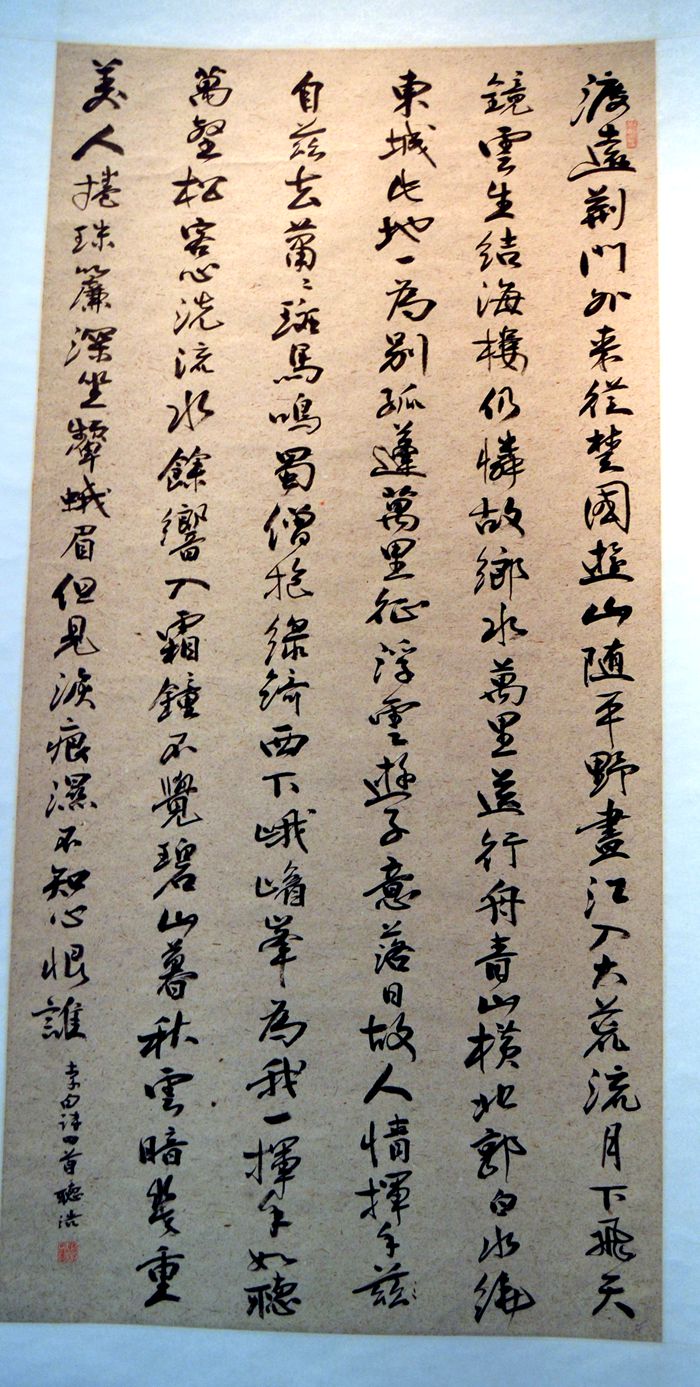 渡遠荊門外来從楚國遊山随平野盡江入大荒流月下飛天
鏡雲生結海樓仍憐故鄉水萬里送行舟青山橫北郭白水繞
東城此地一為別孤蓬萬里征浮雲遊子意落日故人情揮手兹
自兹去蕭〻班馬鳴蜀僧抱綠綺西下峨嵋峯為我一揮手如聽
萬壑松客心洗流水餘響入霜鐘不覺碧山暮秋雲暗幾重
美人捲珠簾深坐顰蛾眉但見淚痕濕不知心恨誰
李白詩四首